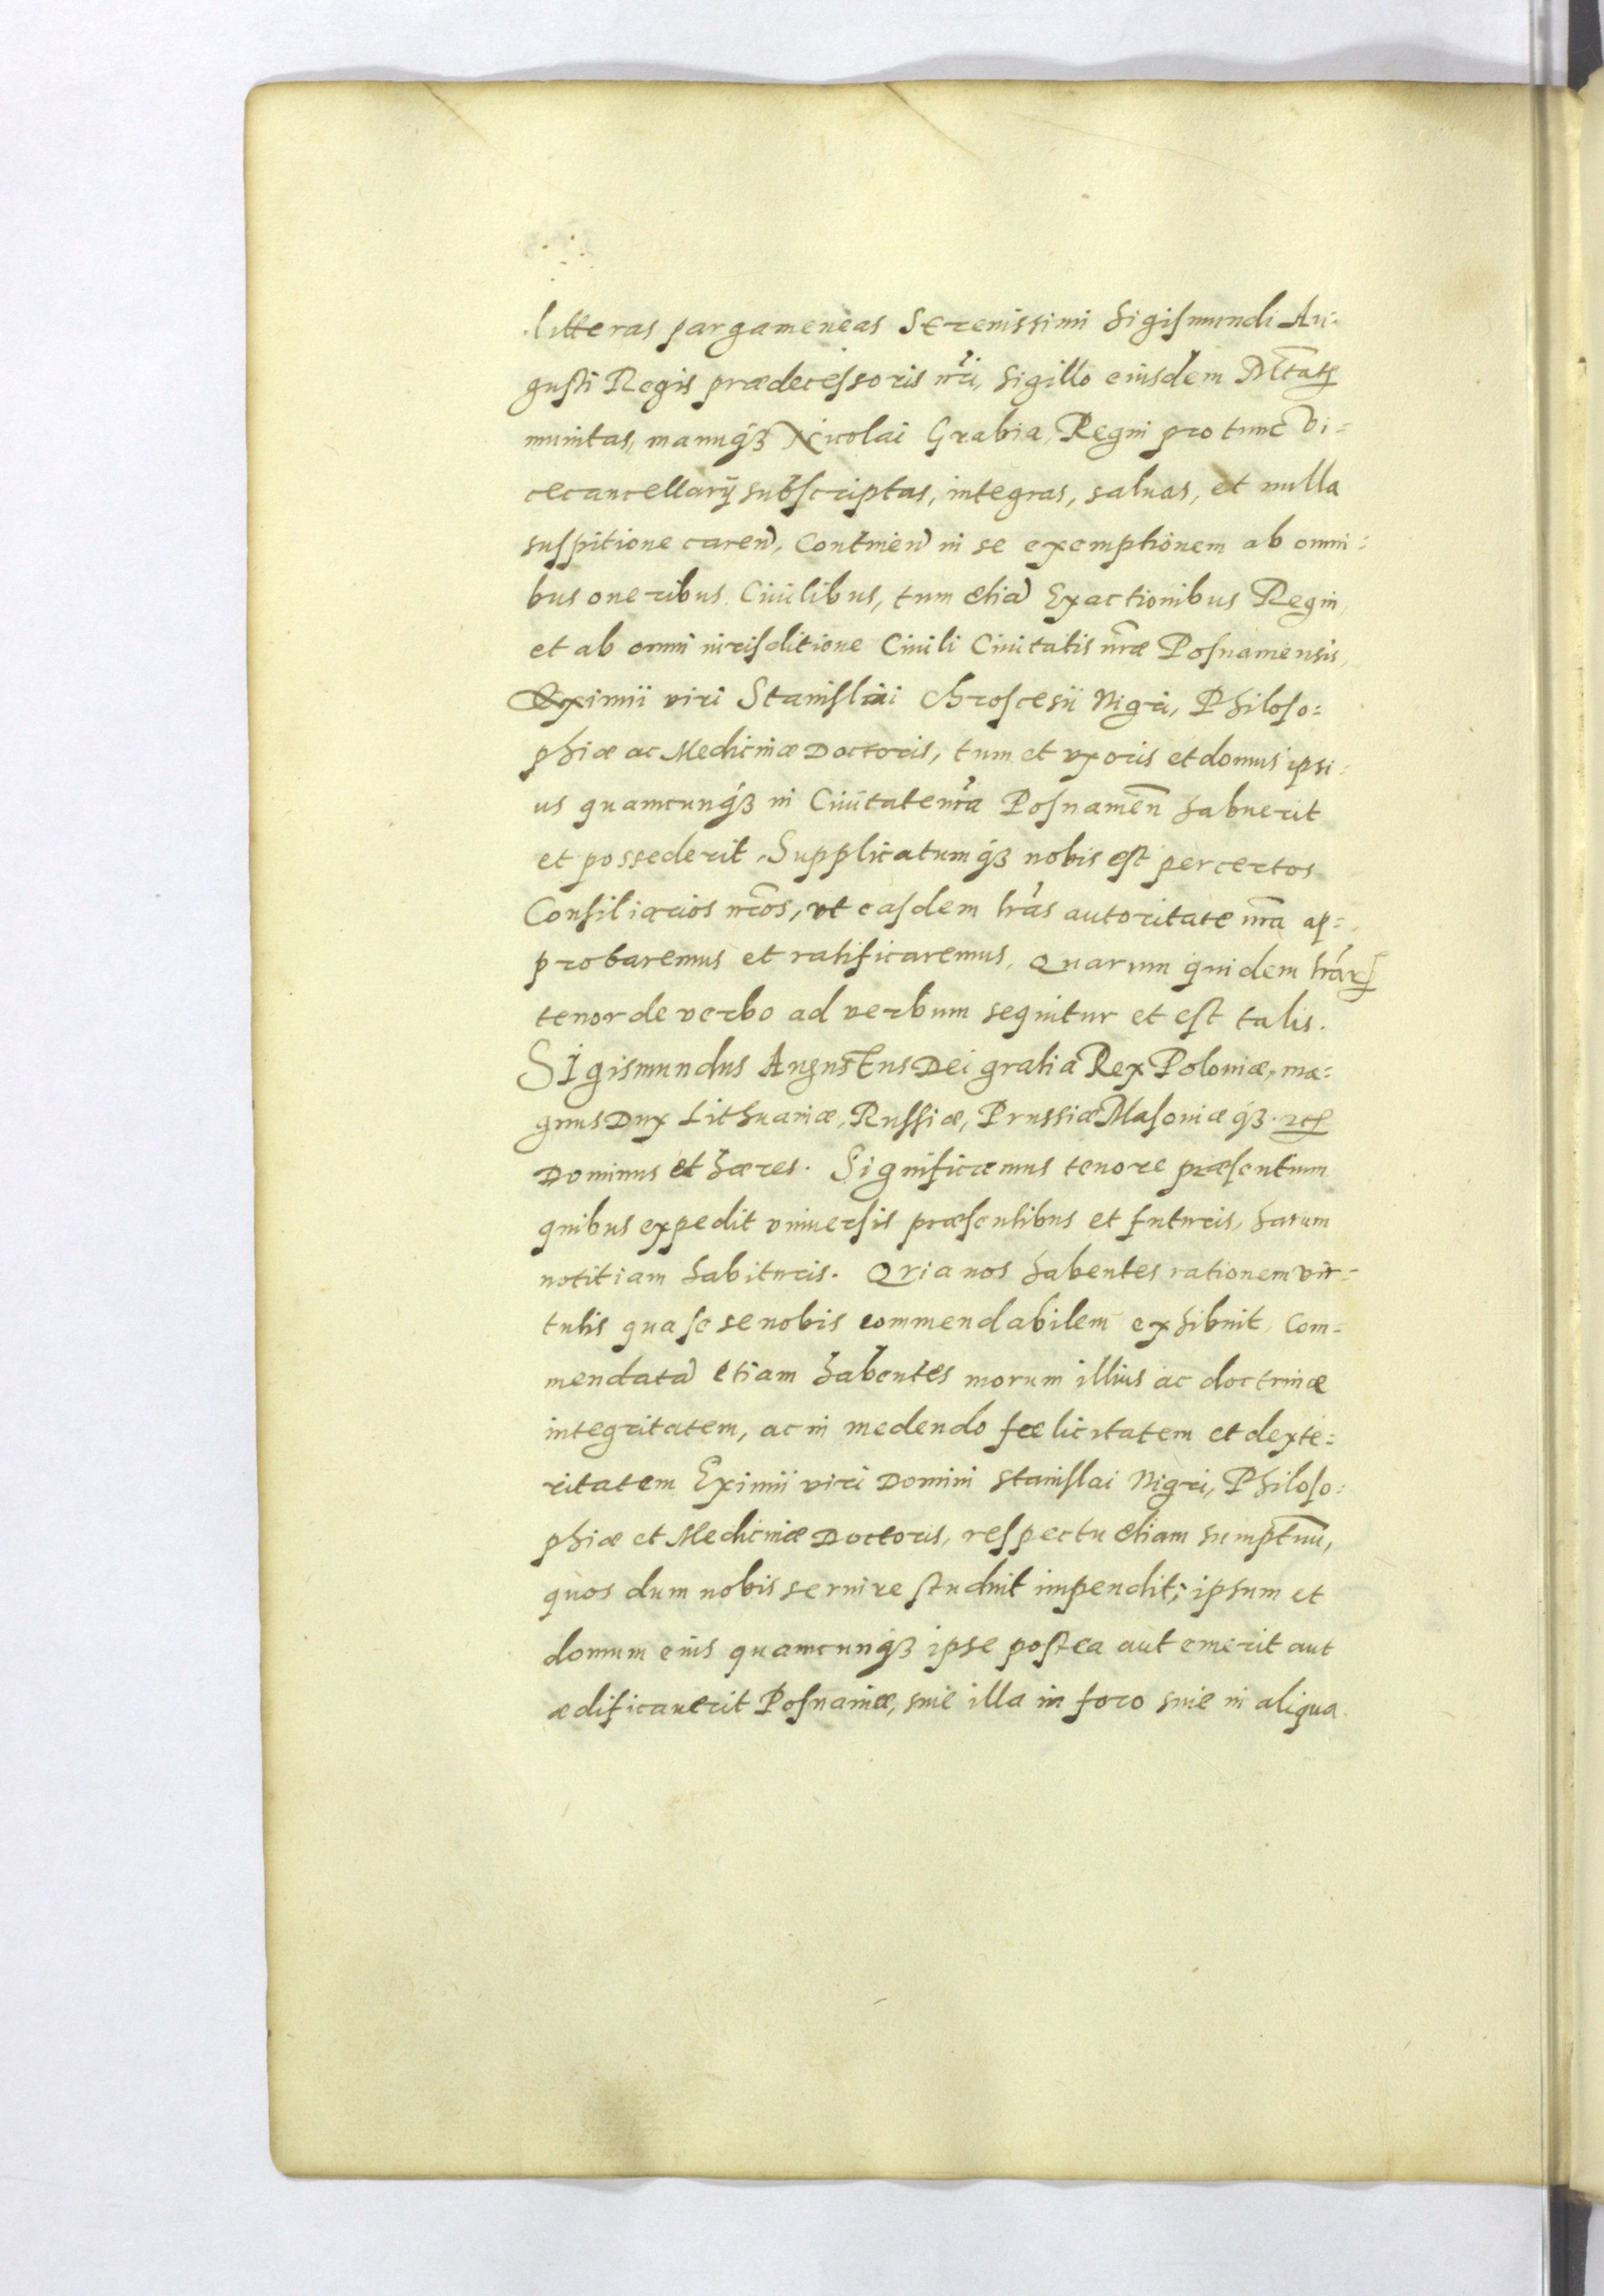 litteras pargameneas Serenissimi Sigismundi Au-
gusti Regis prædecessoris nr̃i, Sigillo eiusdem Mt̃atis
munitas, manuq́3 Nicolai Grabia, Regni pro tunc Vi=
cecancellarij subscriptas, integras, saluas, et nulla
suspitione careñ, Contineñ in se exemptionem ab omni=
bus oneribus Ciuilibus, tum etiã Exactionibus Regni,
et ab omni iurisditione Ciuili Ciuitatis nr̃æ Posnamensis,
Eximii viri Stanislai Chroscesii Nigri, Philoso=
phiæ ac Medicinæ Doctoris, tum et vxoris et domus ipsi=
us quamcunq́3 in Ciuitate nr̃a Posnameñ habuerit
et possederit. Supplicatumq́3 nobis est per certos
Consiliarios nr̃os, vt easdem lr̃as autoritate nr̃a ap=
probaremus et ratificaremus. Quarum quidem lr̃arum
tenor de verbo ad verbum sequitur et est talis.
Sigismundus Augustus Dei gratia Rex Poloniæ, ma=
gnus Dux Lithuaniæ, Russiæ, Prussiæ Masoniæq́3. etc
Dominus et hæres. Significamus tenore præsentium
quibus expedit vniuersis præsentibus et futuris, harum
notitiam habituris. Quia nos habentes rationem vir=
tutis qua se se nobis commendabilem exhibuit, Com=
mendatã etiam habentes morum illius ac doctrinæ
integritatem, ac in medendo fœlicitatem et dexte=
ritatem Eximii viri Domini Stanislai Nigri, Philoso=
phiæ et Medicinæ Doctoris, respectu etiam sumptuũ,
quos dum nobis seruire studuit impendit; ipsum et
domum eius quamcunq́3 ipse postea aut emerit aut
ædificauerit Posnaniæ, siue illa in foro siue in aliqua